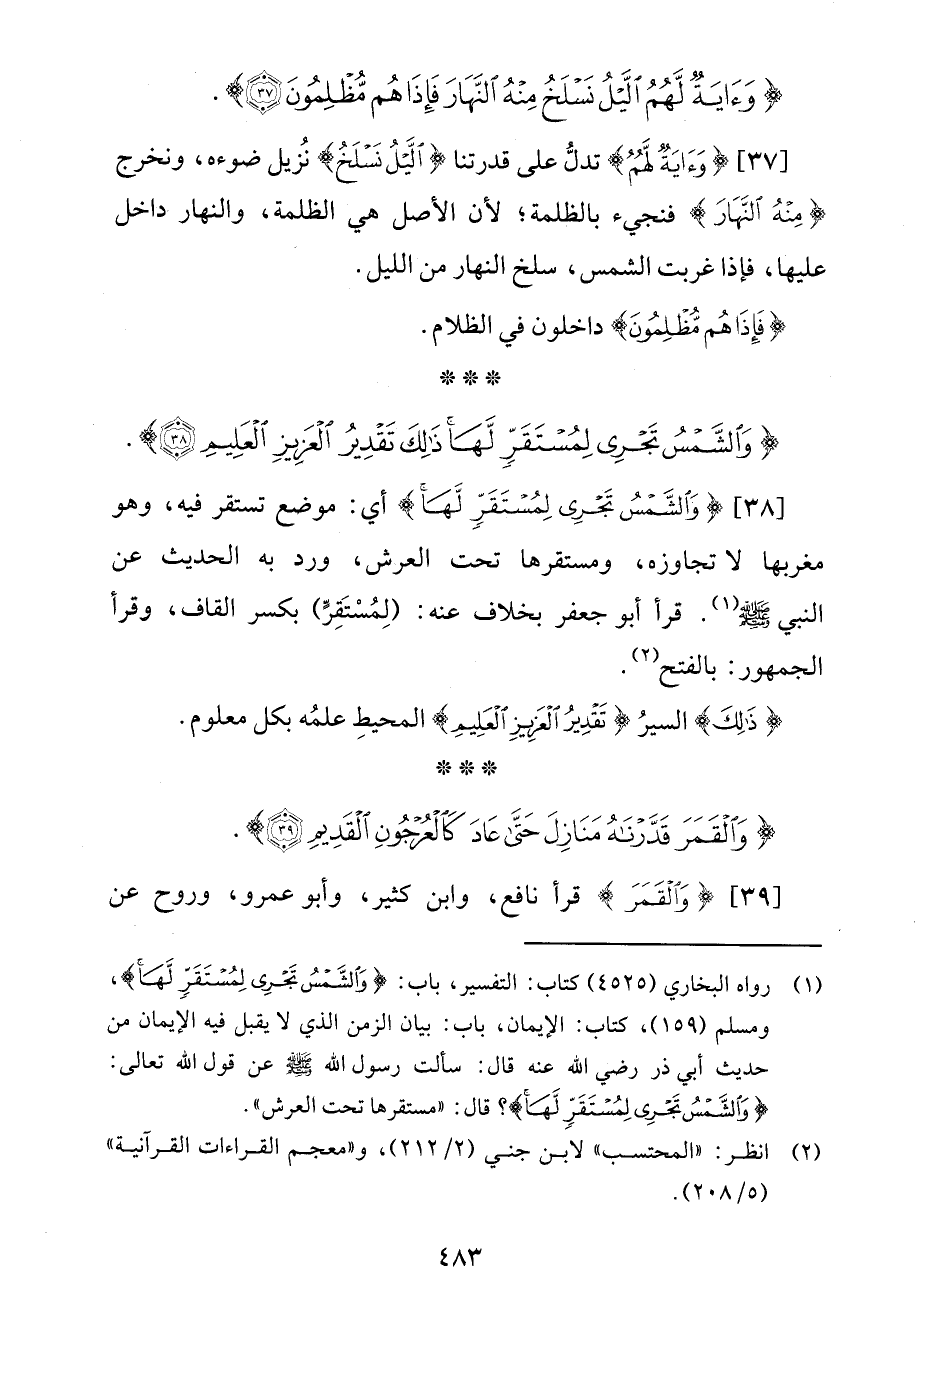 ﴿ وَءَايَةٌ لَّهُمُ ٱلَّيْلُ نَسْلَخُ مِنْهُ ٱلنَّهَارَ فَإِذَا هُم مُّظْلِمُونَ ٣٧ ﴾ .
[٣٧] ﴿ وَءَايَةٌ لَّهُمُ ﴾ تدلُّ على قدرتنا ﴿ ٱلَّيْلُ نَسْلَخُ ﴾ نُزيل ضوءه، ونخرج
﴿ مِنْهُ ٱلنَّهَارَ ﴾ فنجيء بالظلمة؛ لأن الأصل هي الظلمة، والنهار داخل
عليها، فإذا غربت الشمس، سلخ النهار من الليل.
﴿ فَإِذَا هُم مُّظْلِمُونَ ﴾ داخلون في الظلام.
* * *
﴿ وَٱلشَّمْسُ تَجْرِى لِمُسْتَقَرٍّ لَّهَا ۚ ذَٰلِكَ تَقْدِيرُ ٱلْعَزِيزِ ٱلْعَلِيمِ ٣٨ ﴾ .
[٣٨] ﴿ وَٱلشَّمْسُ تَجْرِى لِمُسْتَقَرٍّ لَّهَا ۚ ﴾ أي: موضع تستقر فيه، وهو
مغربها لا تجاوزه، ومستقرها تحت العرش، ورد به الحديث عن
النبي ﷺ(١). قرأ أبو جعفر بخلاف عنه: (لِمُسْتَقِرٍّ) بكسر القاف، وقرأ
الجمهور: بالفتح(٢).
﴿ ذَٰلِكَ ﴾ السيرُ ﴿ تَقْدِيرُ ٱلْعَزِيزِ ٱلْعَلِيمِ ﴾ المحيطِ علمُه بكل معلوم.
* * *
﴿ وَٱلْقَمَرَ قَدَّرْنَٰهُ مَنَازِلَ حَتَّىٰ عَادَ كَٱلْعُرْجُونِ ٱلْقَدِيمِ ٣٩ ﴾ .
[٣٩] ﴿ وَٱلْقَمَرَ ﴾ قرأ نافع، وابن كثير، وأبو عمرو، وروح عن
(١) رواه البخاري (٤٥٢٥) كتاب: التفسير، باب: ﴿ وَٱلشَّمْسُ تَجْرِى لِمُسْتَقَرٍّ لَّهَا ۚ ﴾،
ومسلم (١٥٩)، كتاب: الإيمان، باب: بيان الزمن الذي لا يقبل فيه الإيمان من
حديث أبي ذر رضي الله عنه قال: سألت رسول الله ﷺ عن قول الله تعالى:
﴿ وَٱلشَّمْسُ تَجْرِى لِمُسْتَقَرٍّ لَّهَا ۚ ﴾؟ قال: «مستقرها تحت العرش».
(٢) انظر: «المحتسب» لابن جني (٢/٢١٢)، و«معجم القراءات القرآنية»
(٥/٢٠٨).
٤٨٣